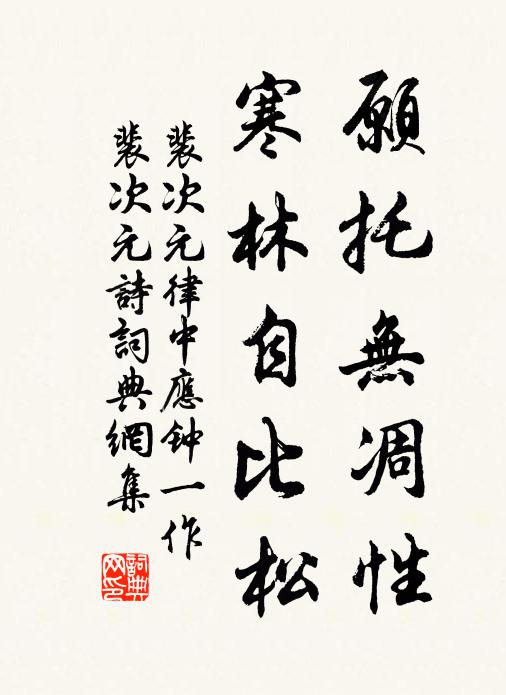 願托無凋性
寒林自比松
裴次元律中應钟一作
裴次元詩詞典網集
詞典
网印